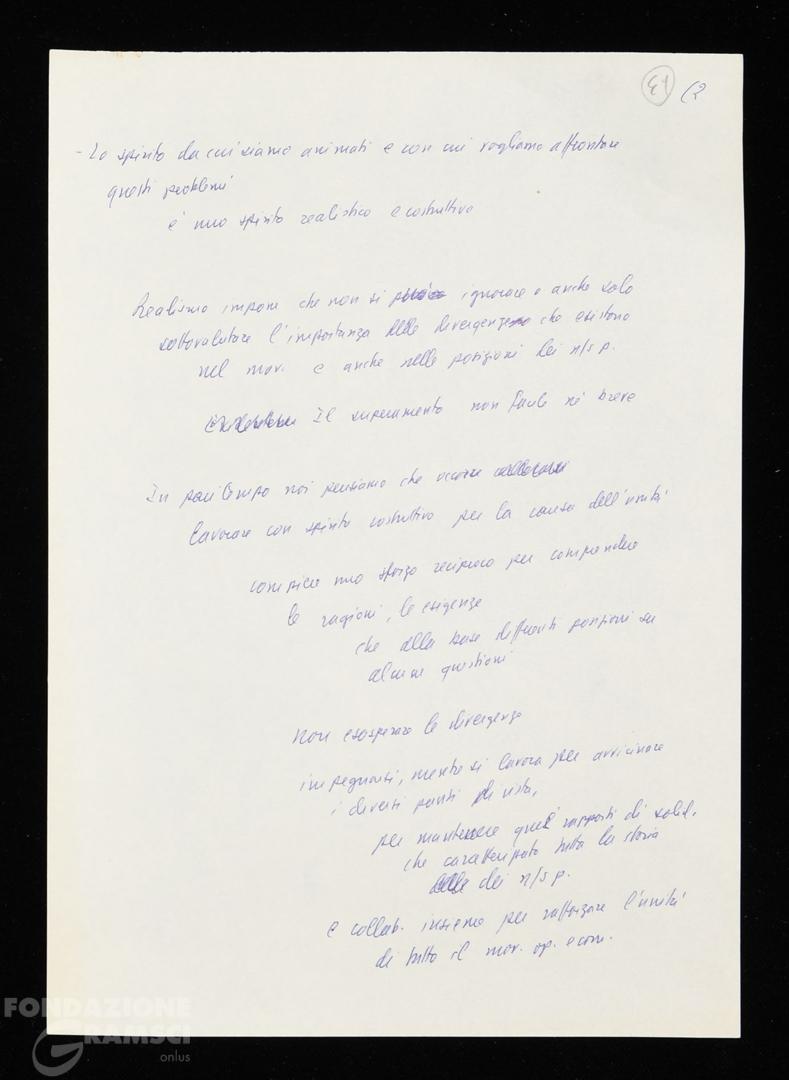 41 (2
- Lo spirito da cui siamo animati e con cui vogliamo affrontare
questi problemi
è uno spirito realistico e costruttivo
Realismo impone che non si ignorare o anche solo
sottovalutare l'importanza delle divergenze che esistono
nel mov. e anche nelle posizioni dei n/s p.
Il superamento non facile né breve
In pari tempo noi pensiamo che occorre
lavorare con spirito costruttivo per la causa dell'unità
compiere uno sforzo reciproco per comprendere
le ragioni, le esigenze
che alla base differenti posizioni su
alcune questioni
Non esasperare le divergenze
impegnarsi, mentre si lavora per avvicinare
i diversi punti di vista,
per mantenere quei rapporti di solid.
che caratterizzato tutta la storia
dei n/s p.
e collab. insieme per rafforzare l'unità
di tutto il mov. op. e com.
FONDAZIONE
GRAMSCI
onlus